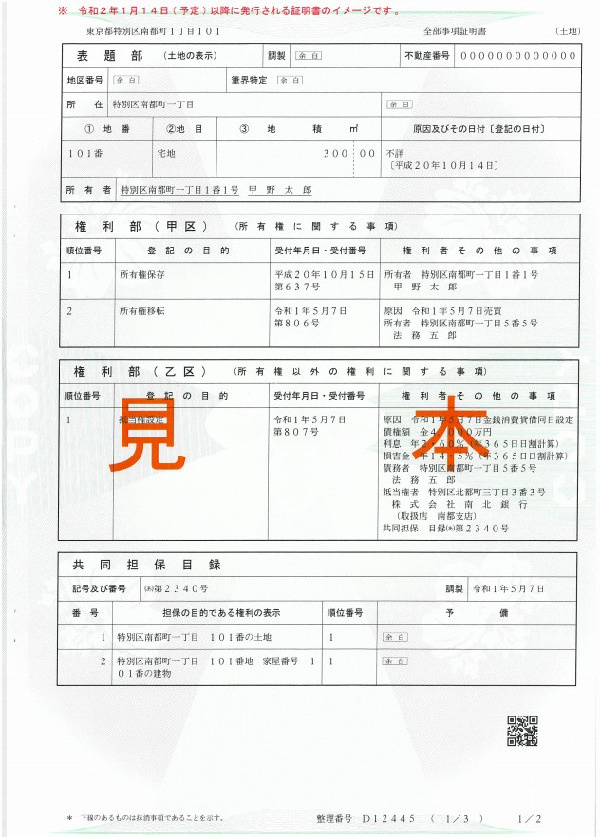 ※ 令和2年1月14日(予定)以降に発行される証明書のイメージです。
東京都特別区南都町1丁目101 全部事項証明書 (土地)
表題部 (土地の表示) 調製 余白 不動産番号 0000000000000
地図番号 余白 筆界特定 余白
所在 特別区南都町一丁目 余白
① 地番 ②地目 ③ 地積 ㎡ 原因及びその日付〔登記の日付〕
101番 宅地 300 00 不詳
〔平成20年10月14日〕
所有者 特別区南都町一丁目1番1号 甲野太郎
権利部(甲区) (所有権に関する事項)
順位番号 登記の目的 受付年月日・受付番号 権利者その他の事項
1 所有権保存 平成20年10月15日 所有者 特別区南都町一丁目1番1号
第637号 甲野太郎
2 所有権移転 令和1年5月7日 原因 令和1年5月7日売買
第806号 所有者 特別区南都町一丁目5番5号
法務五郎
権利部(乙区) (所有権以外の権利に関する事項)
順位番号 登記の目的 受付年月日・受付番号 権利者その他の事項
1 抵当権設定 令和1年5月7日 原因 令和1年5月7日金銭消費貸借同日設定
第807号 債権額 金4,000万円
見本
利息 年2・60%(年365日日割計算)
損害金 年14・5%(年365日日割計算)
債務者 特別区南都町一丁目5番5号
法務五郎
抵当権者 特別区北都町三丁目3番3号
株式会社南北銀行
(取扱店 南都支店)
共同担保 目録(あ)第2340号
共同担保目録
記号及び番号 (あ)第2340号 調製 令和1年5月7日
番号 担保の目的である権利の表示 順位番号 予備
1 特別区南都町一丁目 101番の土地 1 余白
2 特別区南都町一丁目 101番地 家屋番号 1 1 余白
01番の建物
* 下線のあるものは抹消事項であることを示す。 整理番号 D12445 (1/3) 1/2